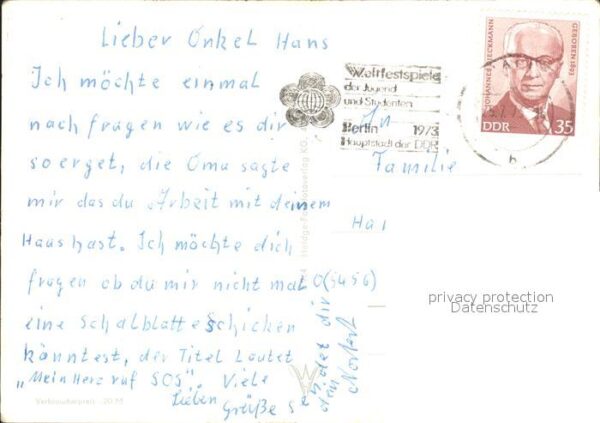 Lieber Onkel Hans
Ich möchte einmal
nach fragen wie es dir
so erget, die Oma sagte
mir das du Arbeit mit deinem
Haus hast. Ich möchte dich
fragen ob du mir nicht mal
eine Schalblatte schicken
könntest, der Titel Lautet
„Mein Herz ruf SOS". Viele
Lieben
Grüße
dir
den Norbert
Weltfestspiele
der Jugend
und Studenten
Berlin 1973
Hauptstadt der DDR
JOHANNES DIECKMANN
GEBOREN 1893
DDR 35
b
An
Familie
Hai
(5456)
privacy protection
Datenschutz
Verbraucherpreis -,20 M